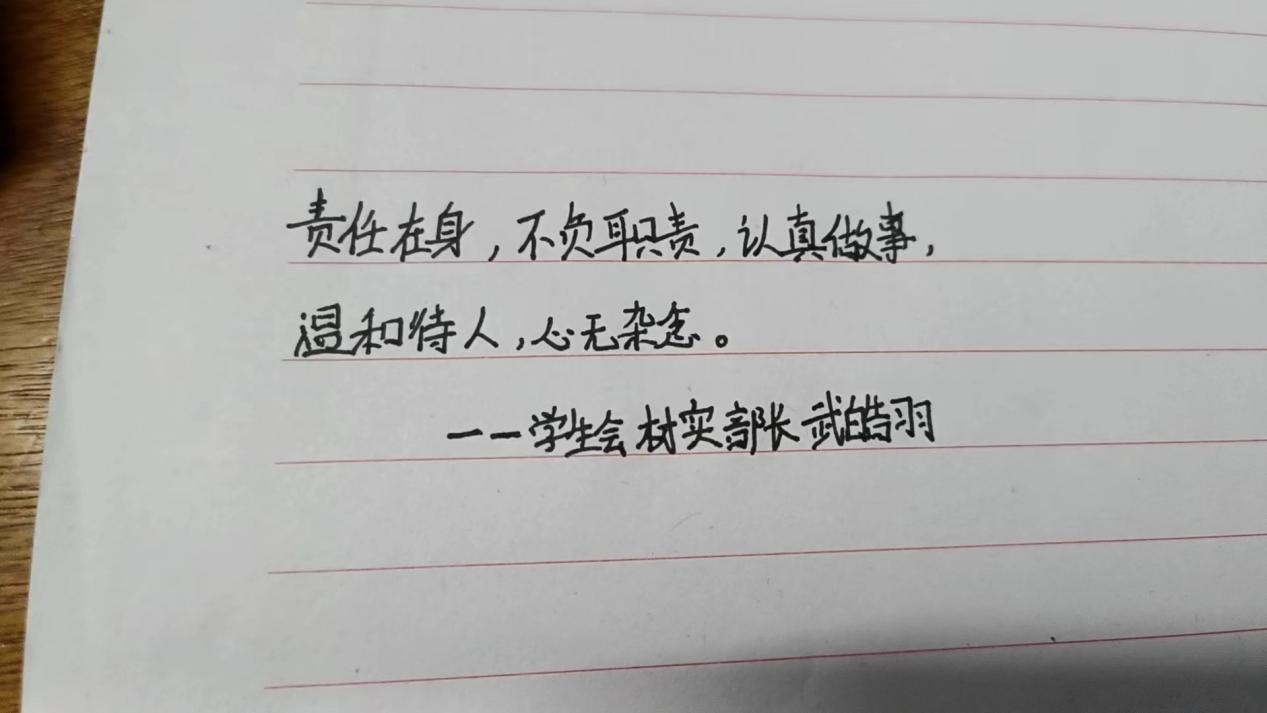 责任在身，不负职责，认真做事，
温和待人，心无杂念。
——学生会 材实部长 武皓羽